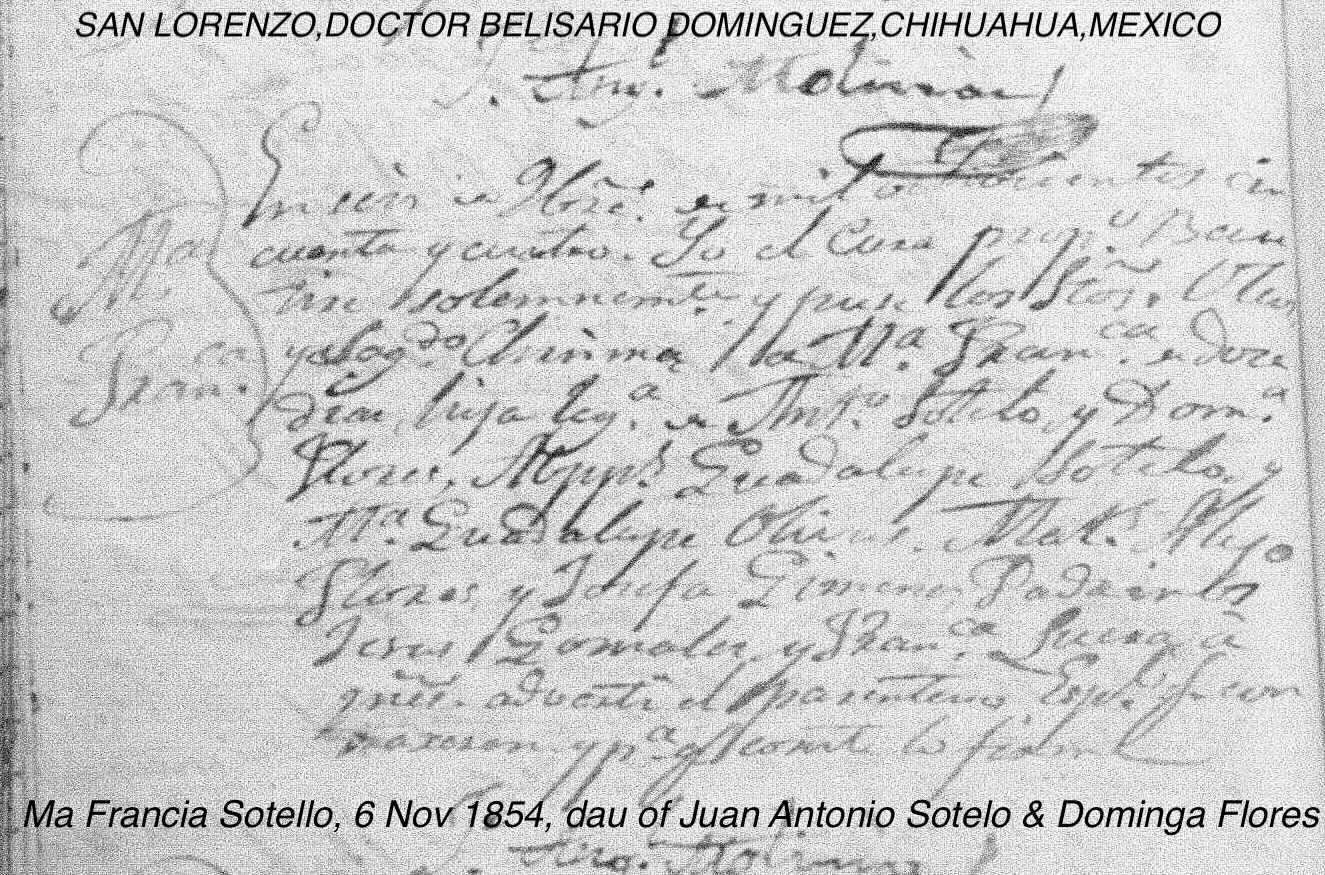 SAN LORENZO,DOCTOR BELISARIO DOMINGUEZ,CHIHUAHUA,MEXICO
Anto. Molinar
En seis de Nbre. de mil ochocientos cin
cuenta y cuatro. Yo el Cura prop.o Bau
tise solemnemte. y puse los Stos. Oleos
y Sagdo Chrisma a Ma. Franca. de doce
Ma.
Franca.
dias, hija lega. de Anto. Sotelo, y Doma.
Flores. App.s Guadalupe Sotelo, y
Ma. Guadalupe Olivas. Mat.s Alejo
Flores, y Josefa Gimenes, Padrinos
Jesus Gonzales, y Franca. a
qnes. advertí el parentesco Esp.l q. con
traxeron, y pa. q. conste lo firmé
Ma Francia Sotello, 6 Nov 1854, dau of Juan Antonio Sotelo & Dominga Flores
Anto. Molinar